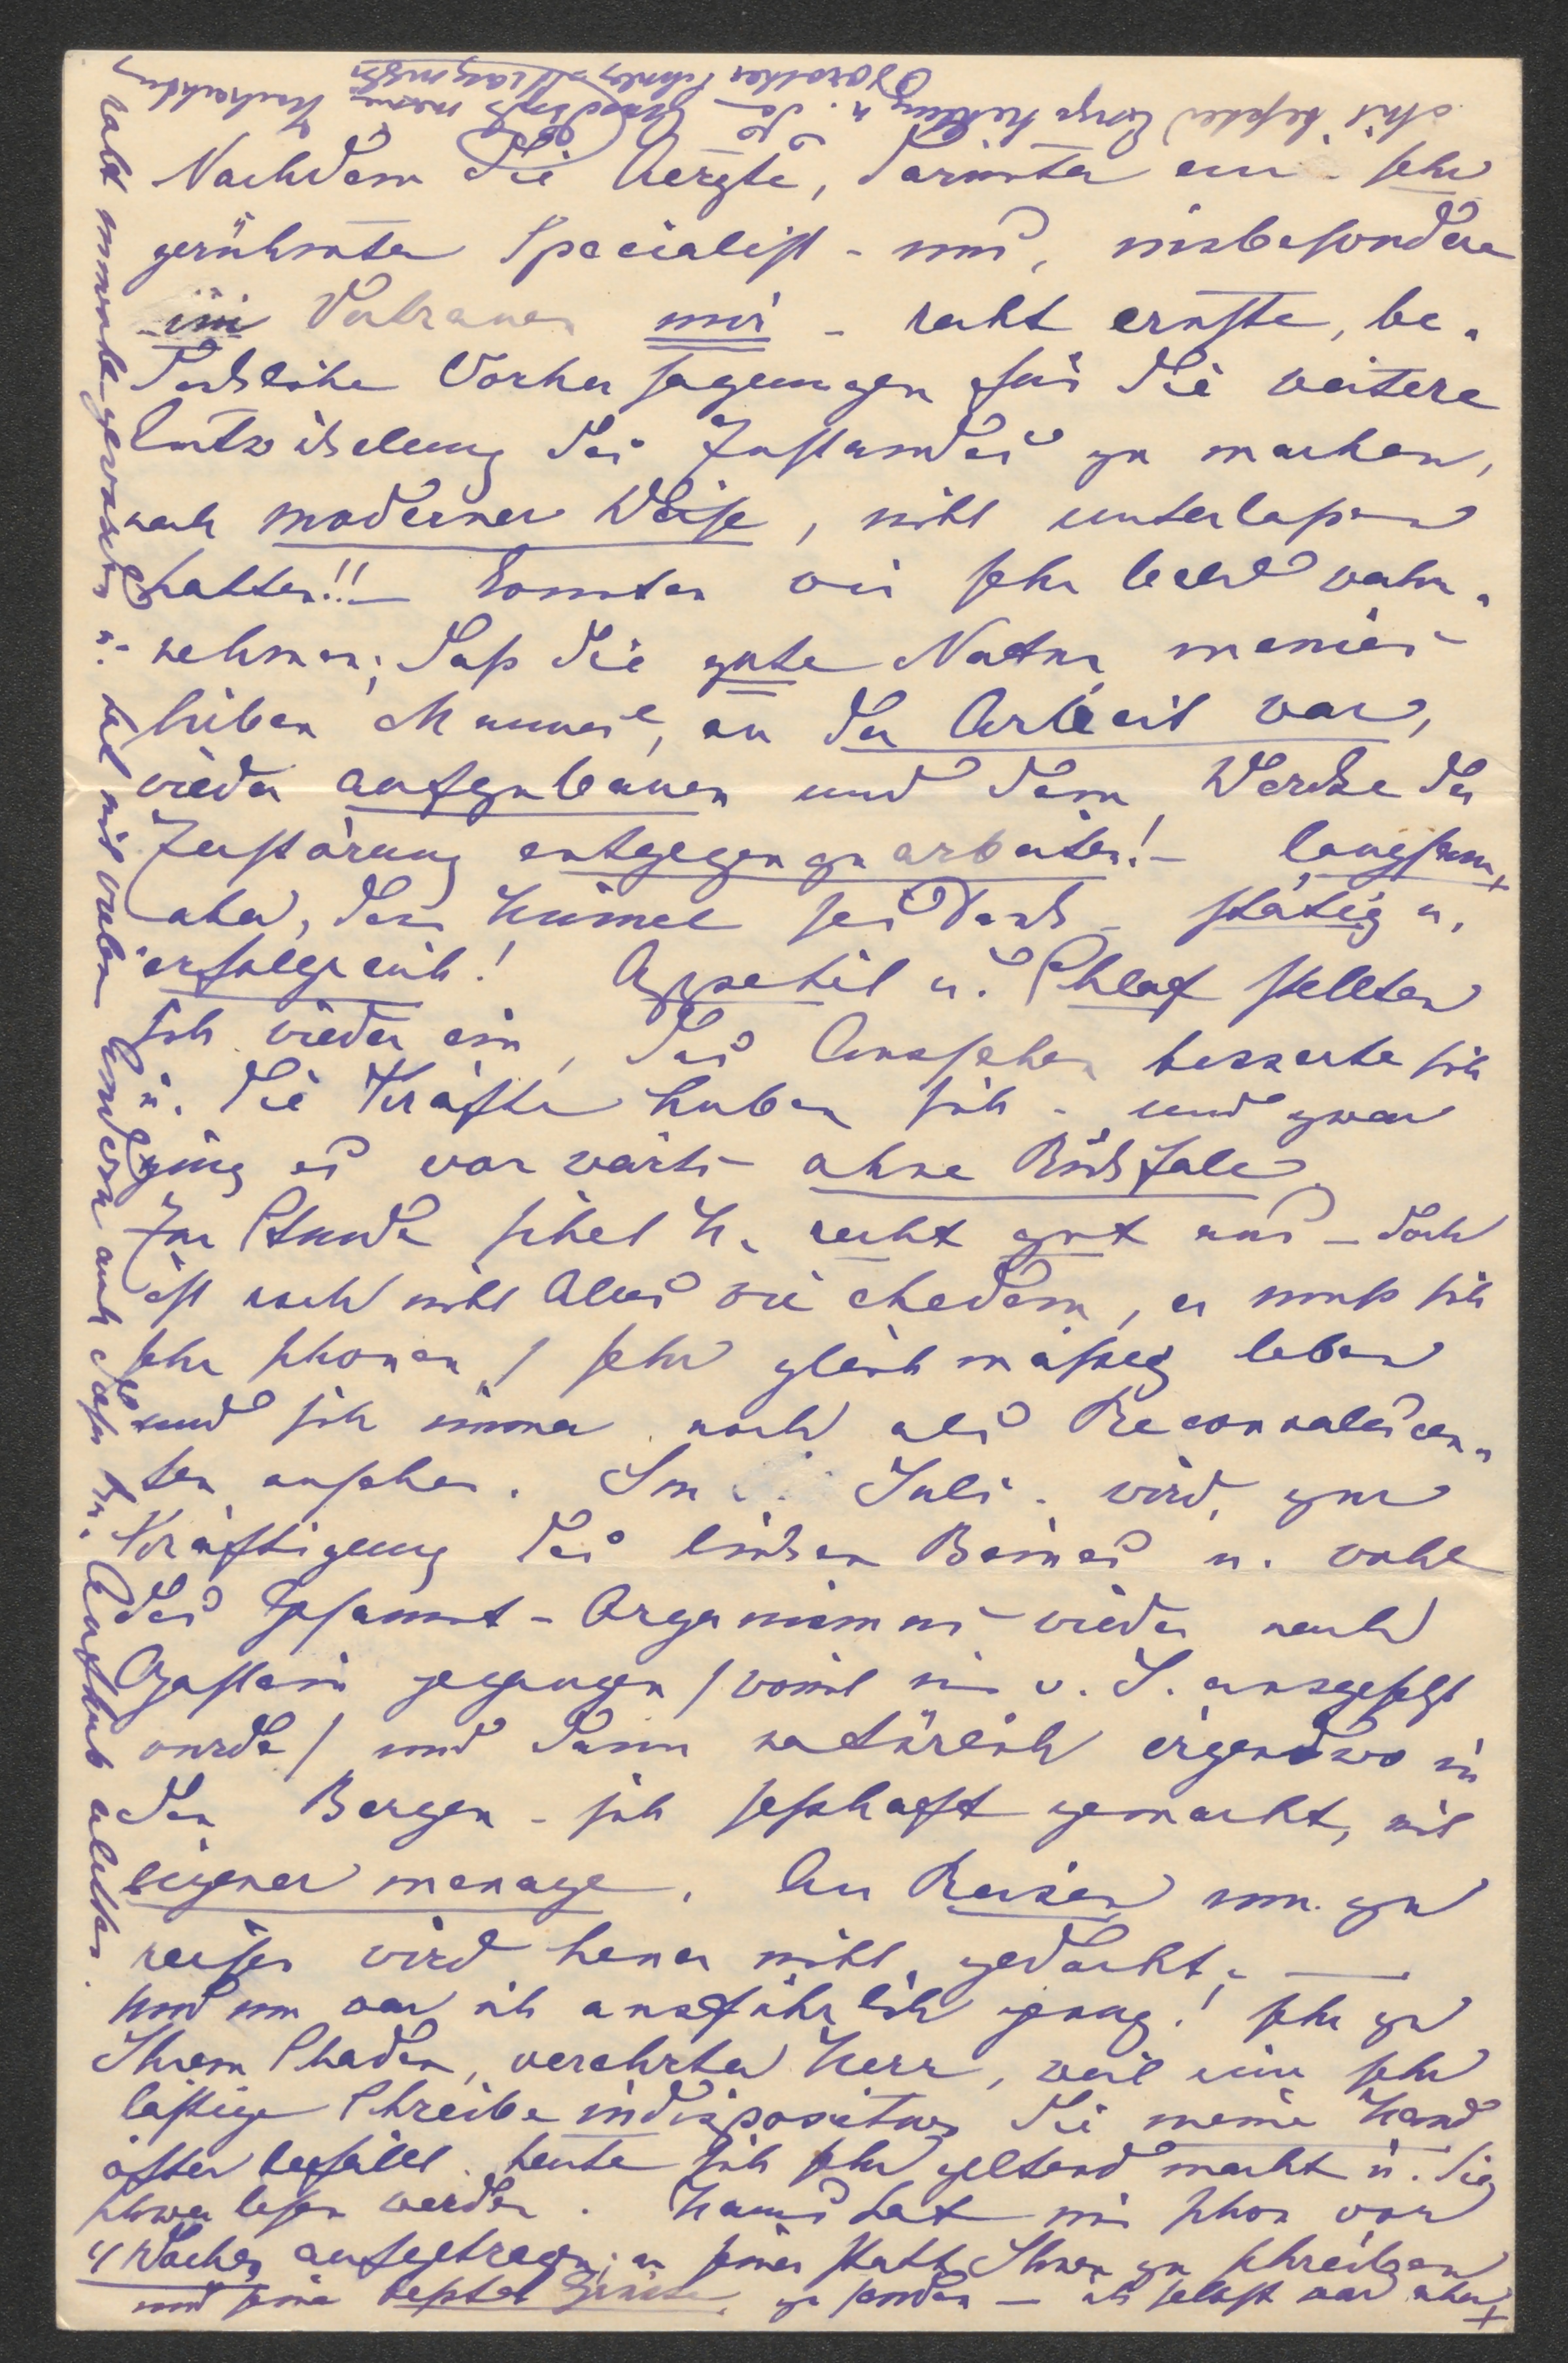 Nachdem die Aerzte, darunter ein sehr
gerühmter Specialist - uns, insbesondere
im Vertrauen mir - recht ernste, be-
denkliche Vorhersagungen für die weitere
Entwickelung des Zustandes zu machen,
nach moderner Weise, nicht unterlassen
hatten!! - konnten wir sehr bald wahr-
nehmen, daß die gute Natur meines
lieben Mannes, an der Arbeit war,
wieder aufzubauen und dem Werke der
Zerstörung entgegen zu arbeiten! - langsam
aber, dem Himmel sei Dank - stätig u.
erfolgreich! Appetit u. Schlaf stellten
sich wieder ein, das Aussehen besserte sich
u. die Kräfte huben sich - und zwar
ging es vorwärts - ohne Rückfälle.
Zur Stunde sieht H. recht gut aus - doch
ist noch nicht Alles wie ehedem, er muß sich
sehr schonen, sehr gleichmäßig leben
und sich immer noch als Reconvalescen-
ten ansehen. Im Juli wird, zur
Kräftigung des linken Beines u. wohl
des Gesammt-Organismus wieder nach
Gastein gegangen / womit im v. J. ausgesetzt
wurde / und dann natürlich irgendwo in
den Bergen - sich seßhaft gemacht, mit
eigener menage. An Reisen um zu
reisen wird heuer nicht gedacht. -
Und nun war ich ausführlich genug! sehr zu
Ihrem Schaden, verehrter Herr, weil eine sehr
lästige Schreibeindisposition die meine Hand
öfter befällt heute sich sehr geltend macht u. Sie
schwer lesen werden. Hans hat mir schon vor
4 Wochen aufgetragen, an seiner statt Ihnen zu schreiben
und seine besten Grüße zu senden - ich selbst war aber
recht unwohl gewesen u. hat mit vielem Andern auch dieser Br. Aufschub erlitten.
Mit besten